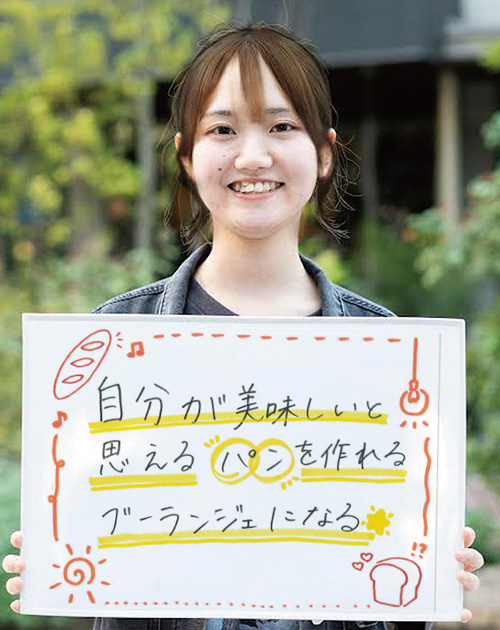 自分が美味しいと
思えるパンを作れる
ブーランジェになる
!?